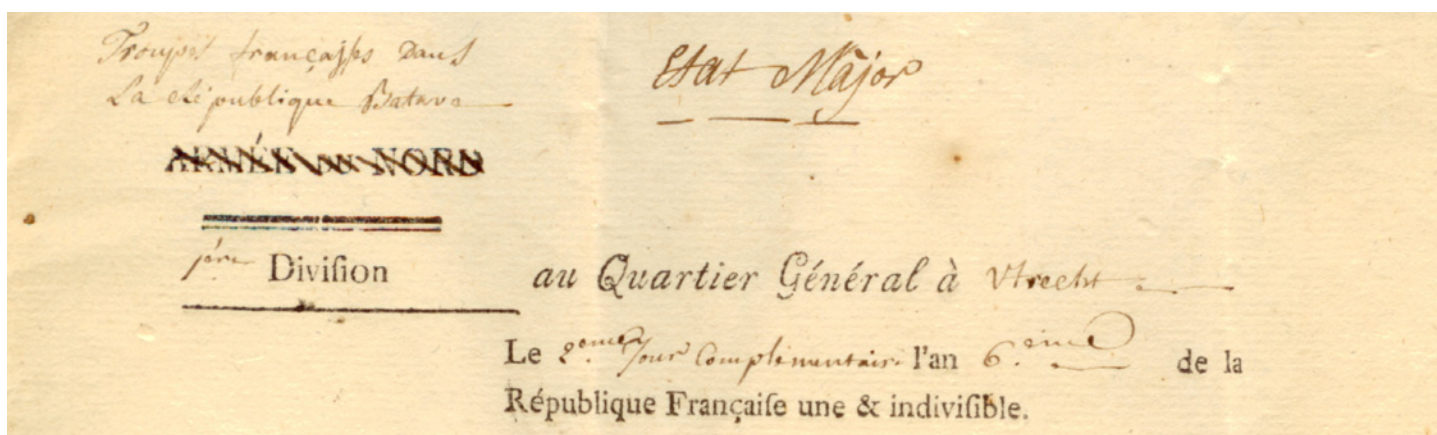 Troupes françaises dans
La République Batave
Etat Major
ARMÉE DU NORD
1ère Diviſion
au Quartier Général à Utrecht
Le 2eme Jour Complémentaire l'an 6.eme de la
République Françaiſe une & indiviſible.